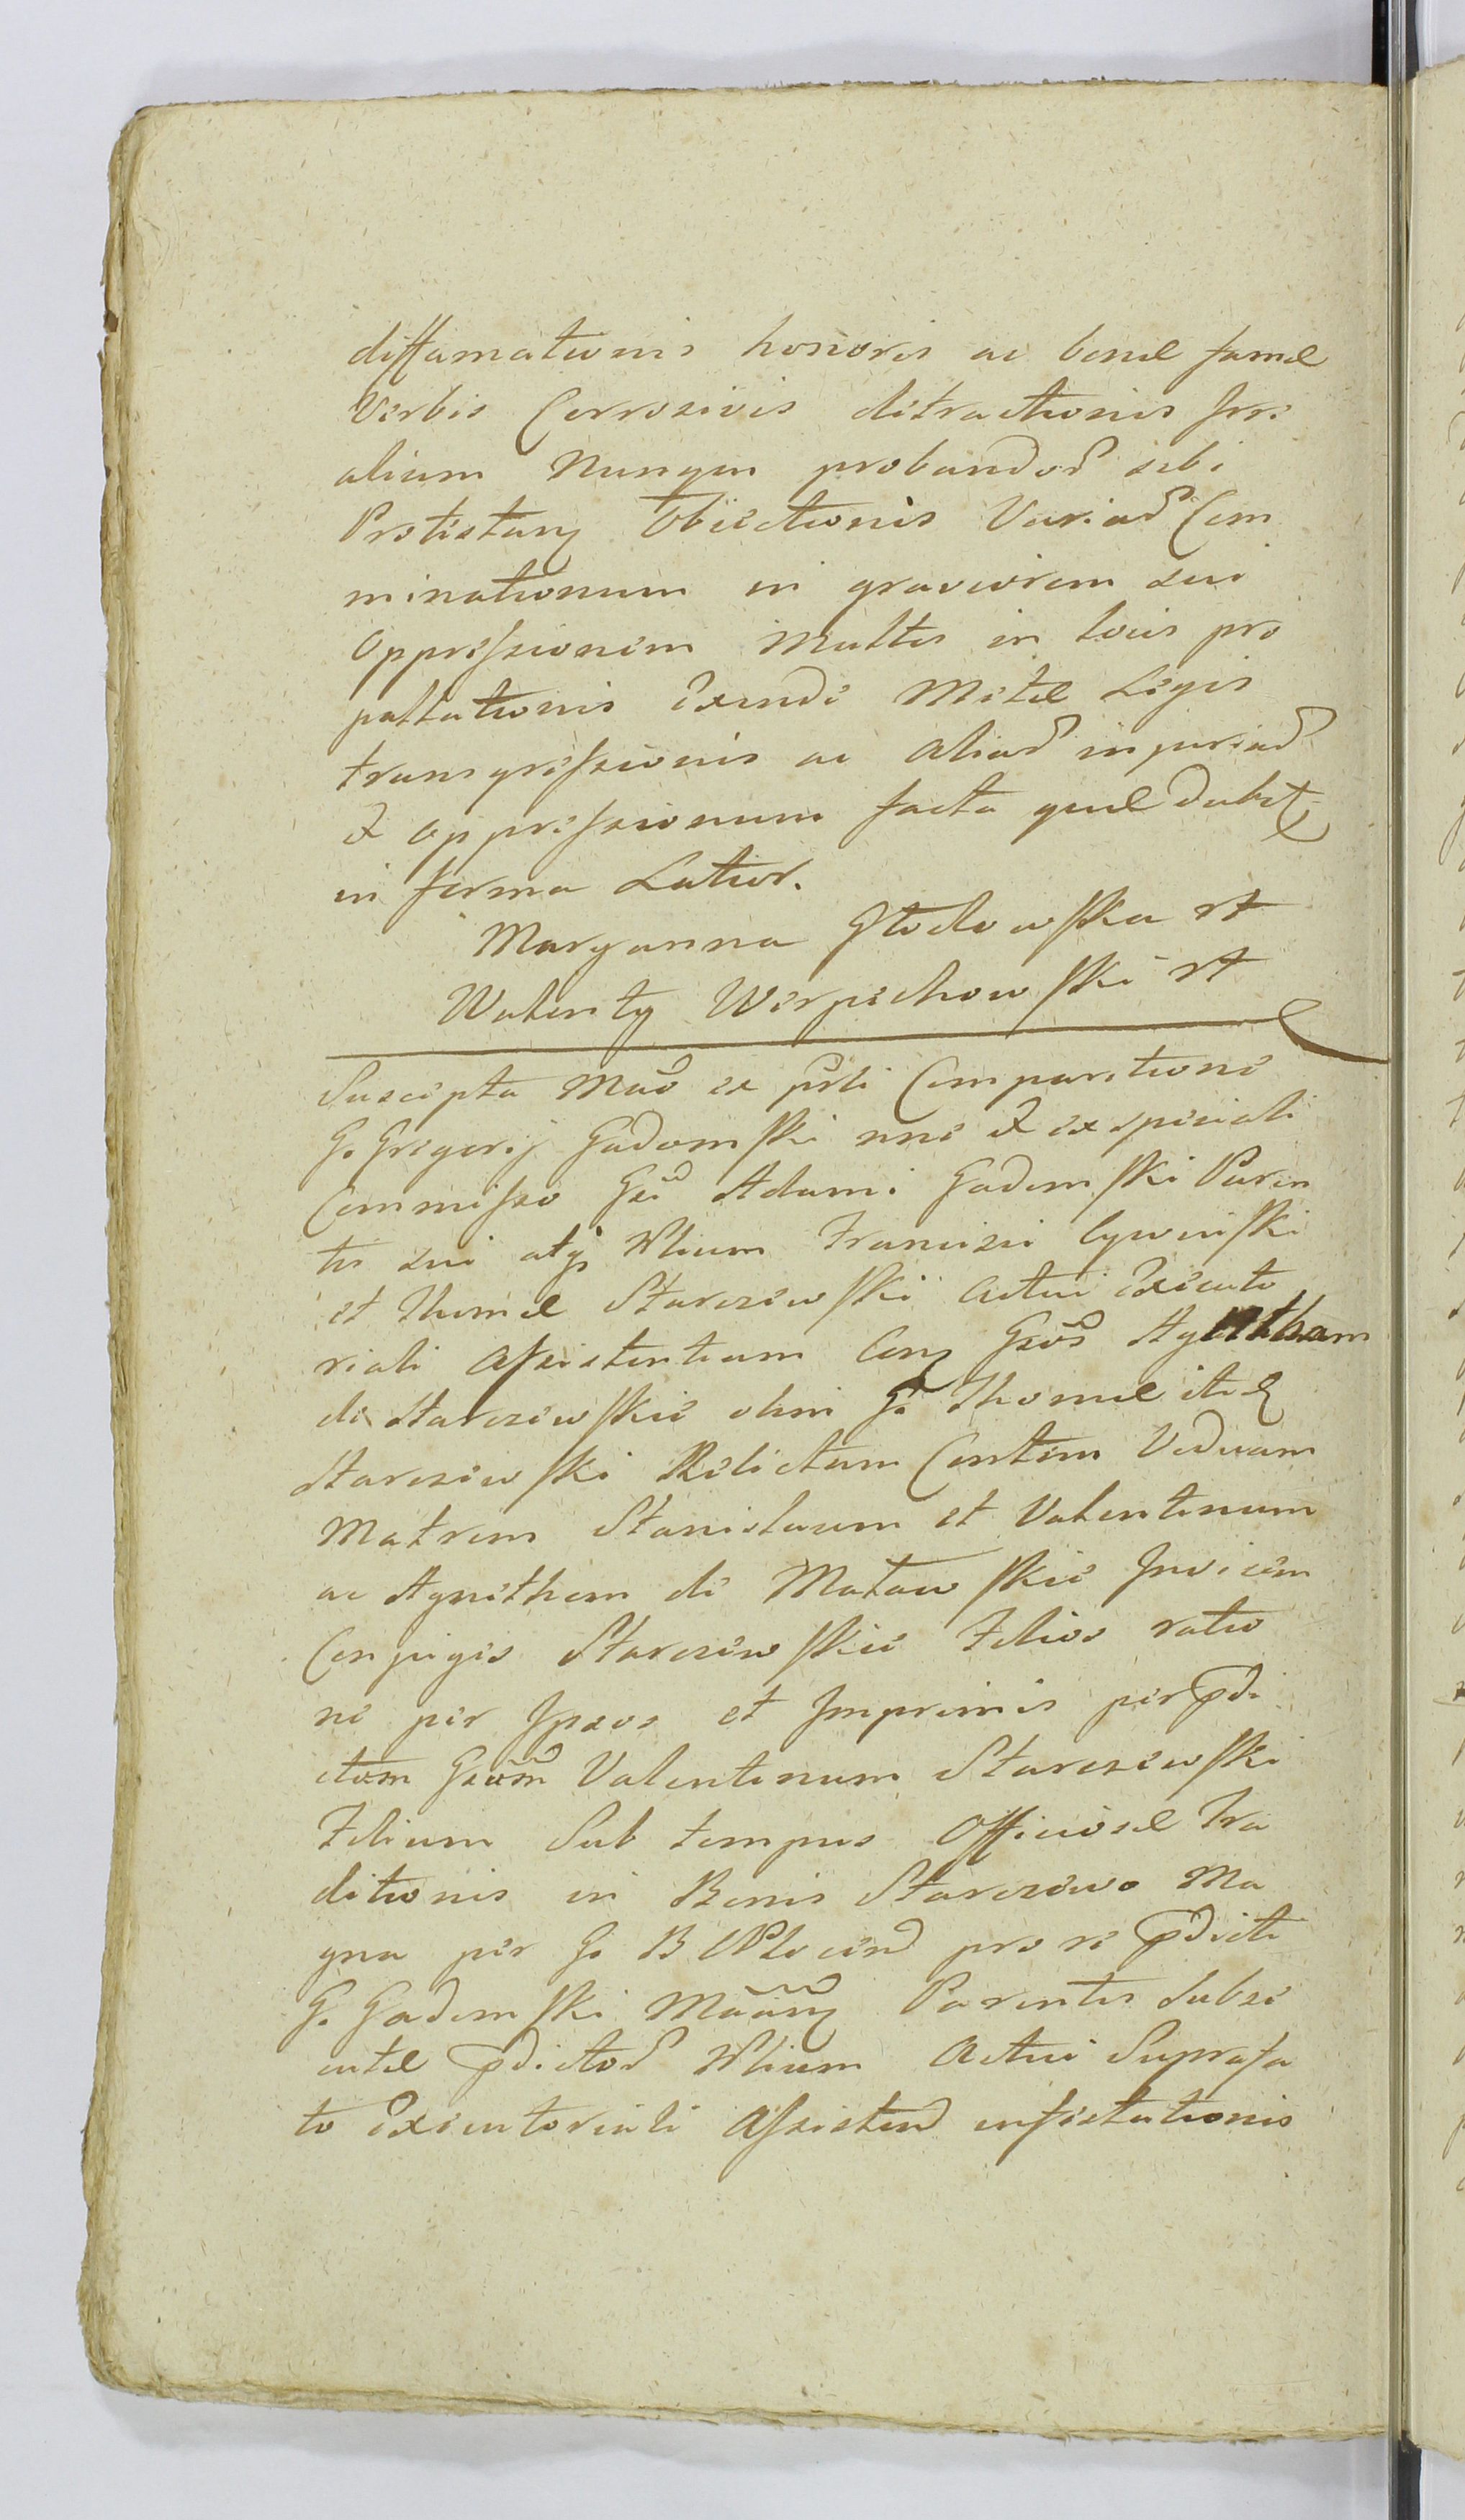 diffamationis honoris ac bonæ famæ
Verbis Corrosivis detractionis Irre
alium Nunqm probandor sibi
Protestanq Obiectionis Variar Com
minationum in graviorem sui
Oppressionem Multis in locis pro
pallationis Exinde Metæ Legis
transgressionis ac aliar injuriar
& oppressionum facta quæ dabit
in forma Latior.
Maryanna Głodowska rt
Walenty Wierzpichowski rt
Suscepta Mao ex psti Comparitione
G. Gregorij Gadomski nne & ex speciali
Commisso Gsi Adami Gadomski Paren
tis sui atq Nlium Francisci Cywiński
et Thomæ Starczewskii Actui Executo
riali Assistentium Con Gsos Agnetham
de Starczewskie olim G. Thomæ it
Starczewski Relictam Conthem Viduam
Matrem Stanislaum et Valentinum
ac Agnethem de Mataw skie Invicem
Conjuges Starczewskie Filios ratio
ne per Ipsos et Imprimis per prædi
ctum Gsum Valentinum Starczewski
Filium Sub tempus Officiosæ tra
ditionis in Bonis Starczewo Ma
gna per G. B Plocen pro re prædicti
G. Gadomski Parentis Subse
cutæ prædictor Nlium Actui Suprafa
to Executoriali Assisten infestationis